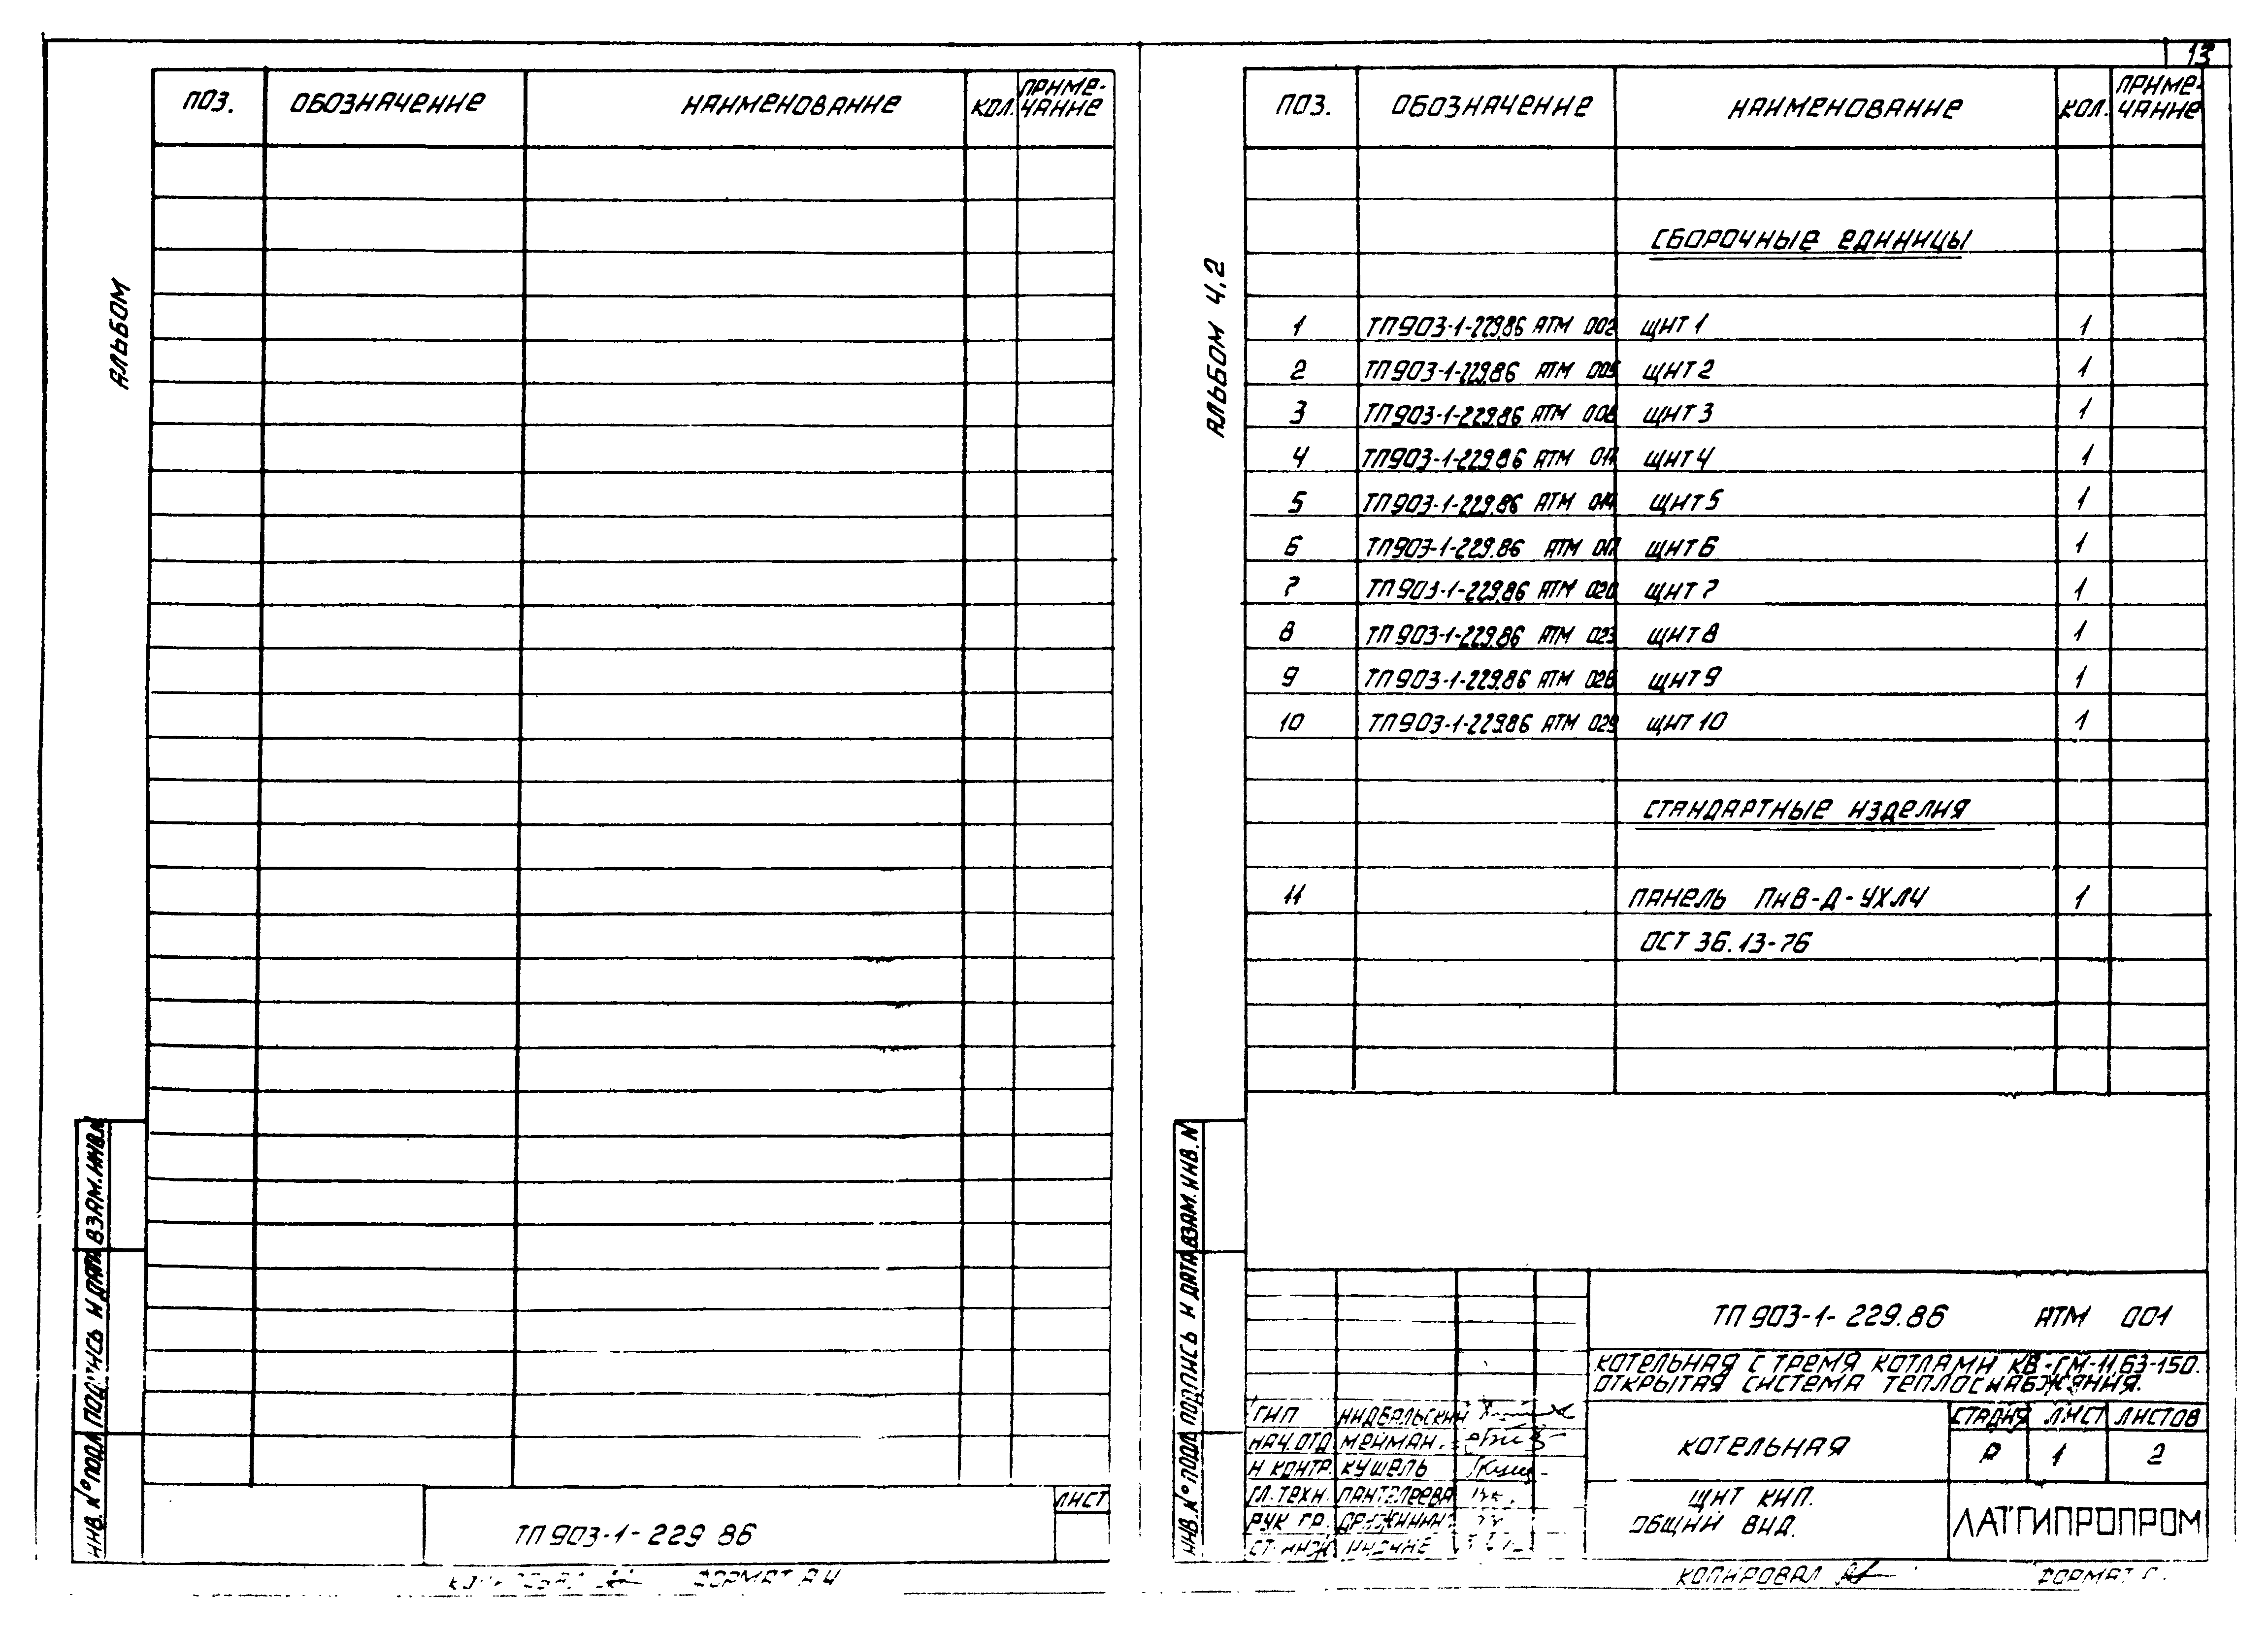 13
АЛЬБОМ
ПОЗ. ОБОЗНАЧЕНИЕ НАИМЕНОВАНИЕ КОЛ. ПРИМЕ-
ЧАНИЕ
ВЗАМ.ИНВ.N
ПОДПИСЬ И ДАТА
ИНВ.N° ПОДЛ
ТП 903-1-229 86
ЛИСТ
ФОРМАТ А4
АЛЬБОМ 4.2
ПОЗ. ОБОЗНАЧЕНИЕ НАИМЕНОВАНИЕ КОЛ. ПРИМЕ-
ЧАНИЕ
СБОРОЧНЫЕ ЕДИНИЦЫ
1 ТП903-1-229.86 АТМ 002 ЩИТ 1 1
2 ТП903-1-229.86 АТМ 005 ЩИТ 2 1
3 ТП903-1-229.86 АТМ 008 ЩИТ 3 1
4 ТП903-1-229.86 АТМ 011 ЩИТ 4 1
5 ТП903-1-229.86 АТМ 014 ЩИТ 5 1
6 ТП903-1-229.86 АТМ 017 ЩИТ 6 1
7 ТП903-1-229.86 АТМ 020 ЩИТ 7 1
8 ТП903-1-229.86 АТМ 023 ЩИТ 8 1
9 ТП903-1-229.86 АТМ 026 ЩИТ 9 1
10 ТП903-1-229.86 АТМ 029 ЩИТ 10 1
СТАНДАРТНЫЕ ИЗДЕЛИЯ
11 ПАНЕЛЬ ПнВ-Д-УХЛ4 1
ОСТ 36.13-76
ВЗАМ.ИНВ.N
ПОДПИСЬ И ДАТА
ИНВ.N° ПОДЛ
ТП 903-1-229.86 АТМ 001
КОТЕЛЬНАЯ С ТРЕМЯ КОТЛАМИ КВ-ГМ-11,63-150.
ОТКРЫТАЯ СИСТЕМА ТЕПЛОСНАБЖЕНИЯ.
ГИП НИДБАЛЬСКИЙ
НАЧ.ОТД. МЕЙМАН
Н.КОНТР. КУШЕЛЬ
ГЛ.ТЕХН. ПАНТЕЛЕЕВА
РУК.ГР.
СТ.ИНЖ
КОТЕЛЬНАЯ
СТАДИЯ ЛИСТ ЛИСТОВ
Р 1 2
ЩИТ КИП.
ОБЩИЙ ВИД.
ЛАТГИПРОПРОМ
КОПИРОВАЛ
ФОРМАТ